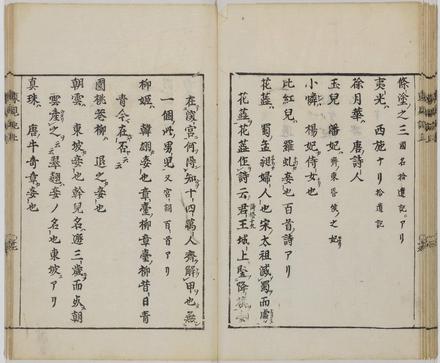 條塗之三 國名拾遺記ニアリ
夷光 西施ナリ拾遺記
徐月華 唐詩人
玉兒 潘妃 齊東昏侯之妃
小憐 楊妃侍女也
比紅兒 羅虬妾也百首詩アリ
花蕋 蜀孟昶婦人也宋太祖滅蜀而虜
花蕋花蕋作詩云君王城上竪降旗妾
在深宮何得知十四萬人齊解甲也無
一個是男兒又宮詞百首アリ
柳姬 韓翃妾也章臺柳章臺柳昔日青
青今在否云云
園桃巷柳 退之妾也
朝雲 東坡妾也幹兒名遯三歲而夭朝
雲產之云云翠翹妾ノ名也東坡ニアリ
真珠 唐牛奇章妾也